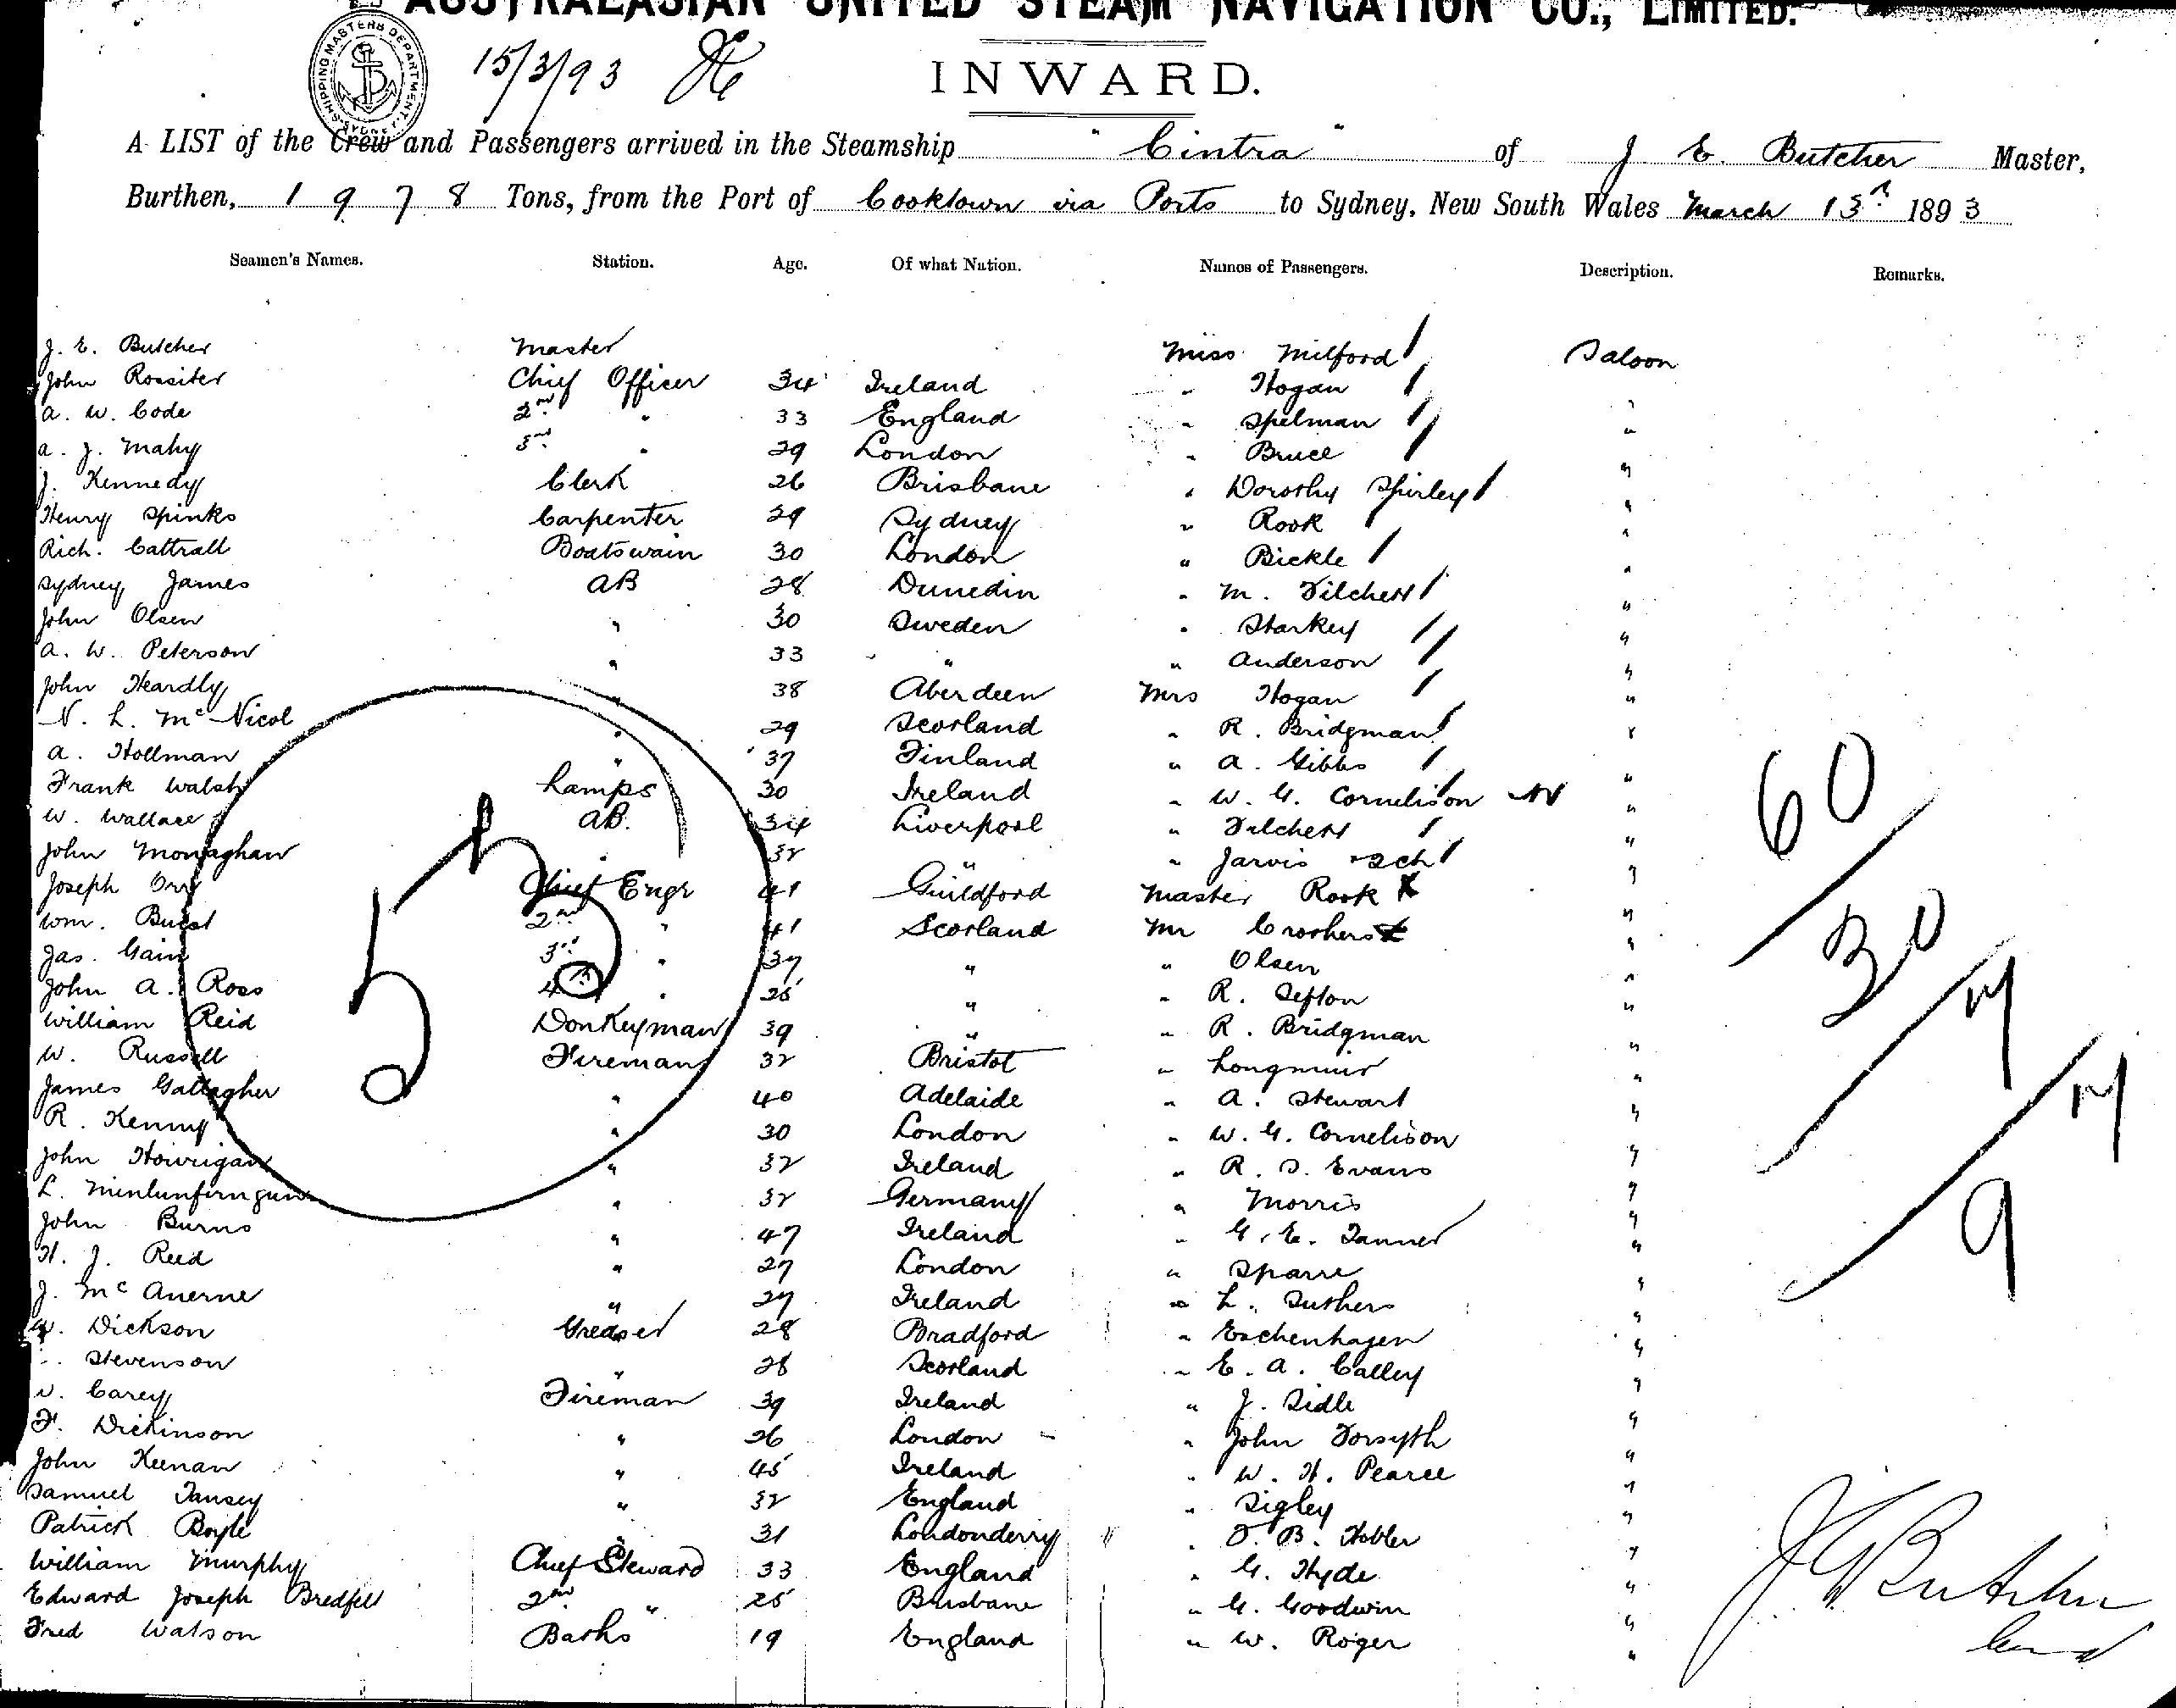 AUSTRALASIAN UNITED STEAM NAVIGATION CO., LIMITED.
SHIPPING MASTERS DEPARTMENT SYDNEY
15/3/93
INWARD.
A LIST of the Crew and Passengers arrived in the Steamship "Cintra" of J E. Butcher Master,
Burthen, 1978 Tons, from the Port of Cooktown via Ports to Sydney, New South Wales March 13th 1893
Seamen's Names. Station. Age. Of what Nation. Names of Passengers. Description. Remarks.
J. E. Butcher Master Miss Milford Saloon
John Rossiter Chief Officer 34 Ireland " Hogan "
A. W. Code 2nd " 33 England " Spelman "
A. J. Mahy 3rd " 29 London " Bruce "
J. Kennedy Clerk 26 Brisbane " Dorothy Shirley "
Henry Spinks Carpenter 29 Sydney " Rook "
Rich. Cattrall Boatswain 30 London " Bickle "
Sydney James AB 28 Dunedin " M. Tilchett "
John Olsen " 30 Sweden " Starkey "
A. W. Peterson " 33 " " Anderson "
John Heardly " 38 Aberdeen Mrs Hogan "
N. L. McNicol " 29 Scotland " R. Bridgman "
A. Hollman " 37 Finland " A. Gibbs "
Frank Walsh Lamps 30 Ireland " W. G. Cornelison "
W. Wallace AB. 34 Liverpool " Tilchett "
John Monaghan " 32 " " Jarvis 2ch "
Joseph Orr Chief Engr 41 Guildford Master Rook "
Wm. Buist 2nd " 41 Scotland Mr Crothers "
Jas. Gain 3rd " 37 " " Olsen "
John A. Ross 4th " 25 " " R. Sefton "
William Reid Donkeyman 39 " " R. Bridgman "
W. Russell Fireman 32 Bristol " Longmuir "
James Gallagher " 40 Adelaide " A. Stewart "
R. Kenny " 30 London " W. G. Cornelison "
John Hourigan " 32 Ireland " R. S. Evans "
L. " 32 Germany " Morris "
John Burns " 47 Ireland " G. E. Tanner "
H. J. Reid " 27 London " Sparre "
J. McAnerne " 27 Ireland " L. Suthers "
Dickson Greaser 28 Bradford " Eschenhagen "
Stevenson " 28 Scotland " E. A. Calley "
Carey Fireman 39 Ireland " J. Sidle "
F. Dickinson " 26 London " John Forsyth "
John Keenan " 45 Ireland " W. H. Pearce "
Samuel Tansey " 32 England " Sigley "
Patrick Boyle " 31 Londonderry " F. B. Hobler "
William Murphy Chief Steward 33 England " G. Hyde "
Edward Joseph Bredfell 2nd " 25 Brisbane " G. Goodwin "
Fred Watson Baths 19 England " W. Roger "
60
30
9
J E Butcher